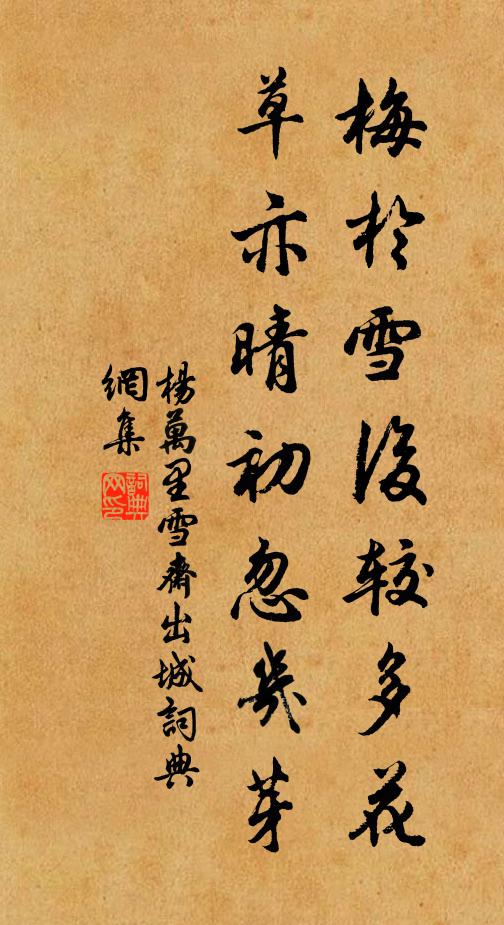 梅於雪後较多花
草亦晴初忽幾芽
楊萬里雪齋出城詞典
網集
詞典
网印